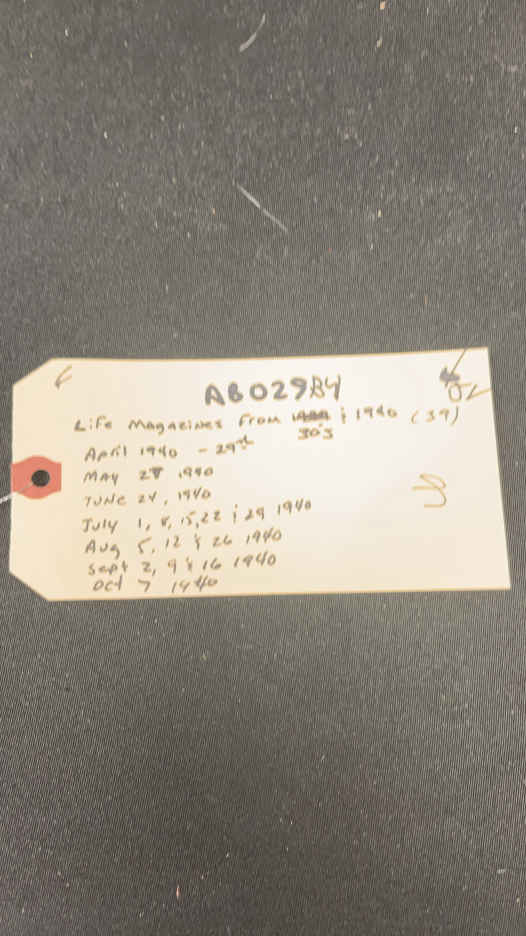 AB029B4
Life Magazines from 30's & 1940 (39)
April 1940 - 29th
May 27 1940
June 24, 1940
July 1, 8, 15, 22 & 29 1940
Aug 5, 12 & 26 1940
Sept 2, 9 & 16 1940
Oct 7 1940